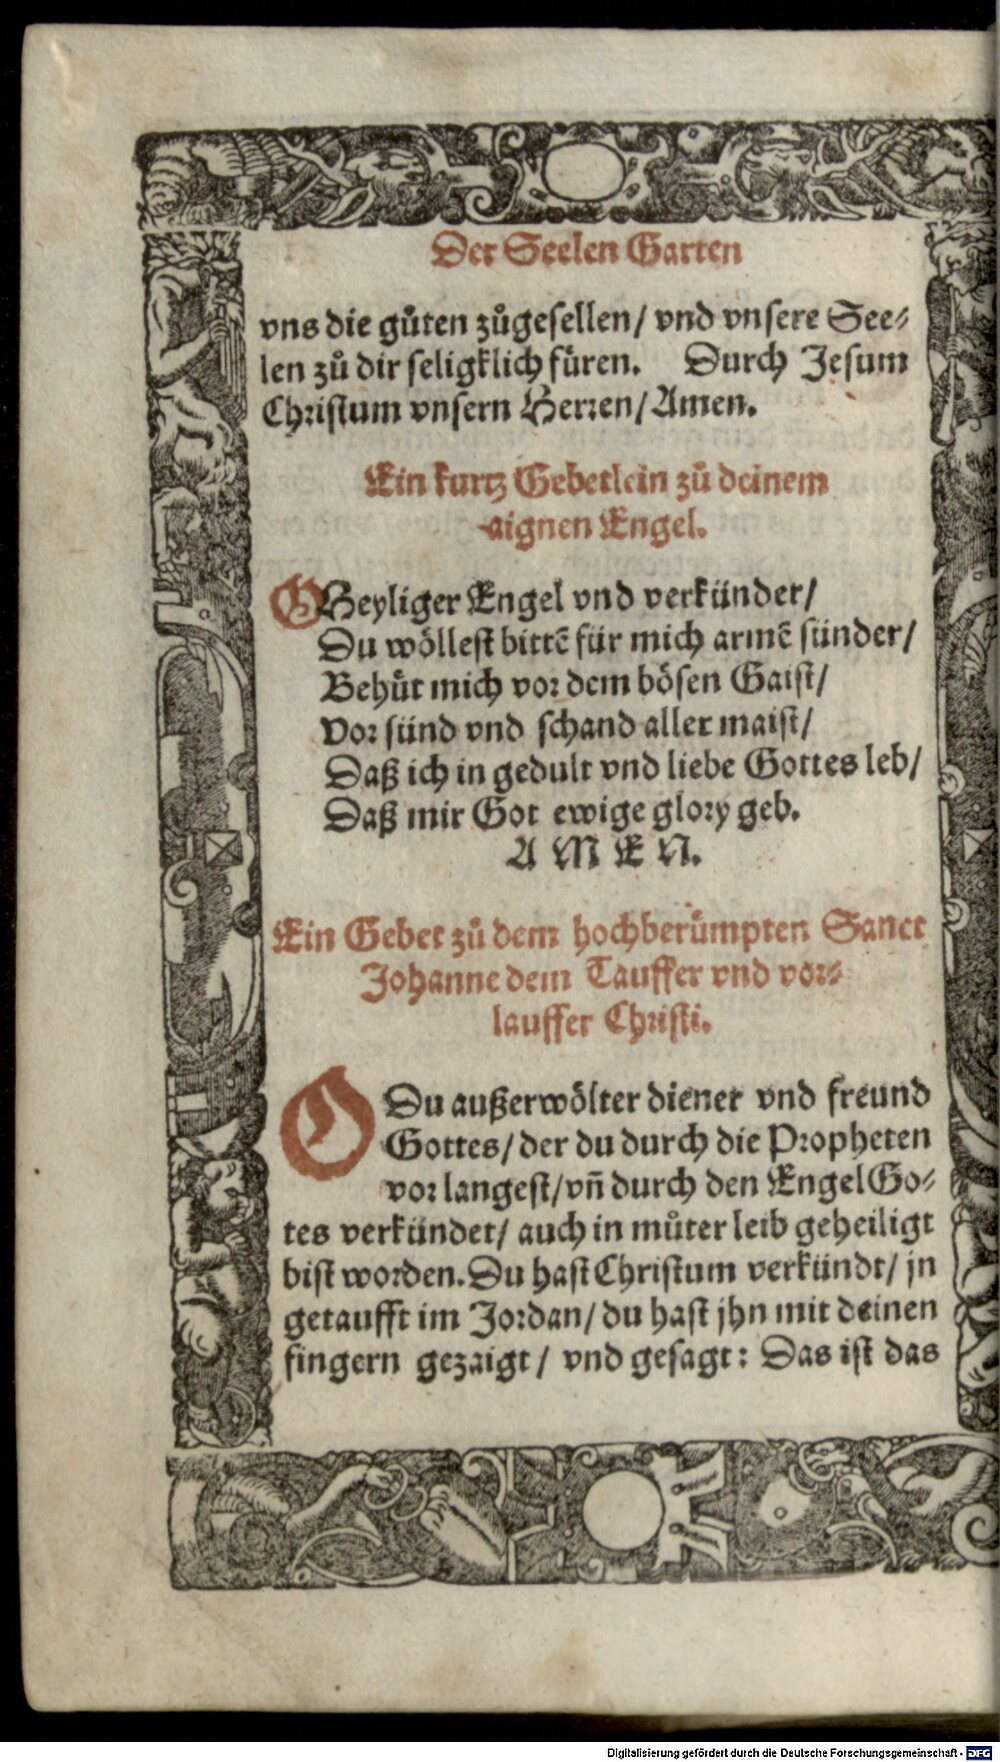 Der Seelen Garten
vns die gůten zůgesellen/ vnd vnsere See⸗
len zů dir seligklich füren. Durch Jesum
Christum vnsern Herren/ Amen.
Ein kurtz Gebetlein zů deinem
aignen Engel.
O Heyliger Engel vnd verkünder/
Du wöllest bittẽ für mich armẽ sünder/
Behůt mich vor dem bösen Gaist/
Vor sünd vnd schand aller maist/
Daß ich in gedult vnd liebe Gottes leb/
Daß mir Got ewige glory geb.
A M E N.
Ein Gebet zů dem hochberůmpten Sanct
Johanne dem Tauffer vnd vor⸗
lauffer Christi.
O Du außerwölter diener vnd freund
Gottes/ der du durch die Propheten
vor langest/ vñ durch den Engel Go⸗
tes verkündet/ auch in můter leib geheiligt
bist worden. Du hast Christum verkündt/ jn
getaufft im Jordan/ du hast jhn mit deinen
fingern gezaigt/ vnd gesagt: Das ist das
Digitalisierung gefördert durch die Deutsche Forschungsgemeinschaft - DFG